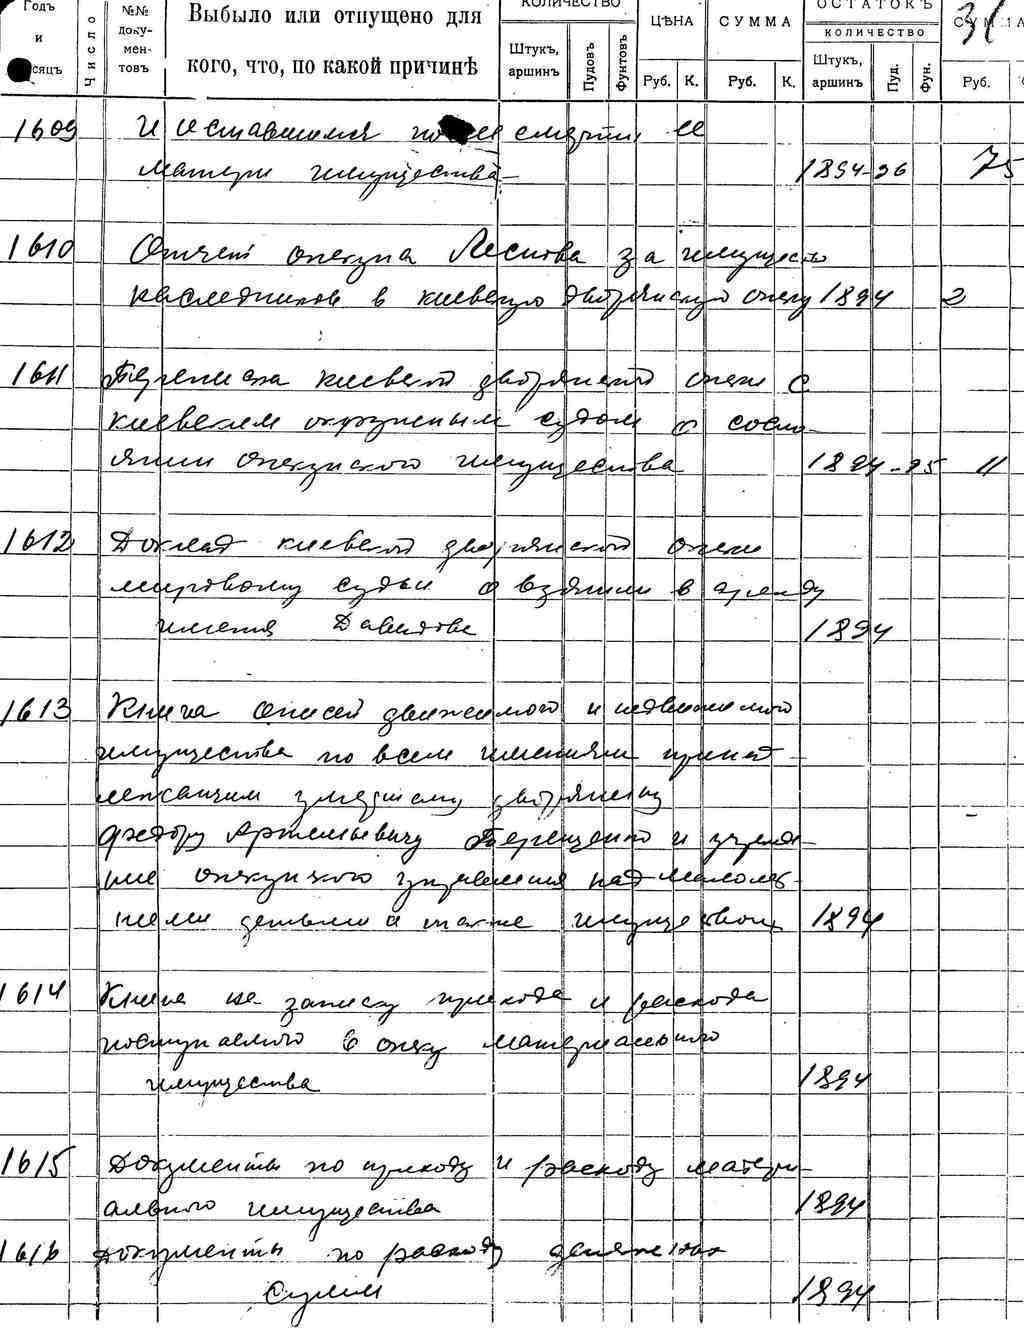 Годъ и сяцъ
Число
№№ доку-мен-товъ
Выбыло или отпущено для кого, что, по какой причинѣ
КОЛИЧЕСТВО
Штукъ, аршинъ
Пудовъ
Фунтовъ
ЦѢНА
Руб. К.
СУММА
Руб. К.
ОСТАТОКЪ
КОЛИЧЕСТВО
Штукъ, аршинъ
Пуд.
Фун.
СУММА
Руб.
31
1609 И оставшимся после смерти ее
матери имущества 1894-96 75
1610 Отчет опекуна Леснова за имущество
наследников в киевскую дворянскую опеку 1894 2
1611 Переписка киевской дворянской опеки с
киевским окружным судом о состо-
янии опекунского имущества 1894-95 11
1612 Доклад киевской дворянской опеки
мировому судьи о взятии в аренду
имения Давидово 1894
1613 Книга описей движимого и недвижимого
имущества по всем имениям принад-
лежавшим умершему дворянину
Федору Артемьевичу Терещенко и учрежде-
ние опекунского управления над малолет-
ними детьми а также имуществом 1894
1614 Книга на записку прихода и расхода
поступаемого в опеку материального
имущества 1894
1615 Документы по приходу и расходу матери-
ального имущества 1894
1616 Документы по расходу денежных
сумм 1894